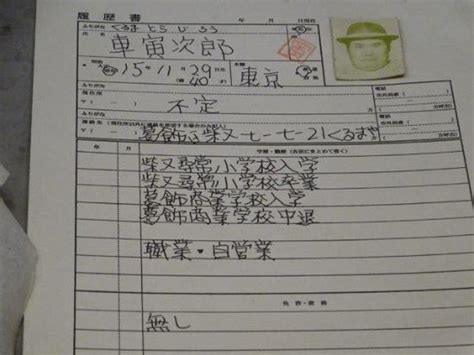 履歴書 年 月 日現在
ふりがな くるま とら じ ろう
氏名 車寅次郎
15年11月29日
(満40才)
本籍 東京
ふりがな
現住所 不定
電話
葛飾区柴又七-七-21くるまや
年 月 学歴・職歴(各別にまとめて書く)
柴又尋常小学校入学
柴又尋常小学校卒業
葛飾商業学校入学
葛飾商業学校中退
職業・自営業
免許・資格
無し